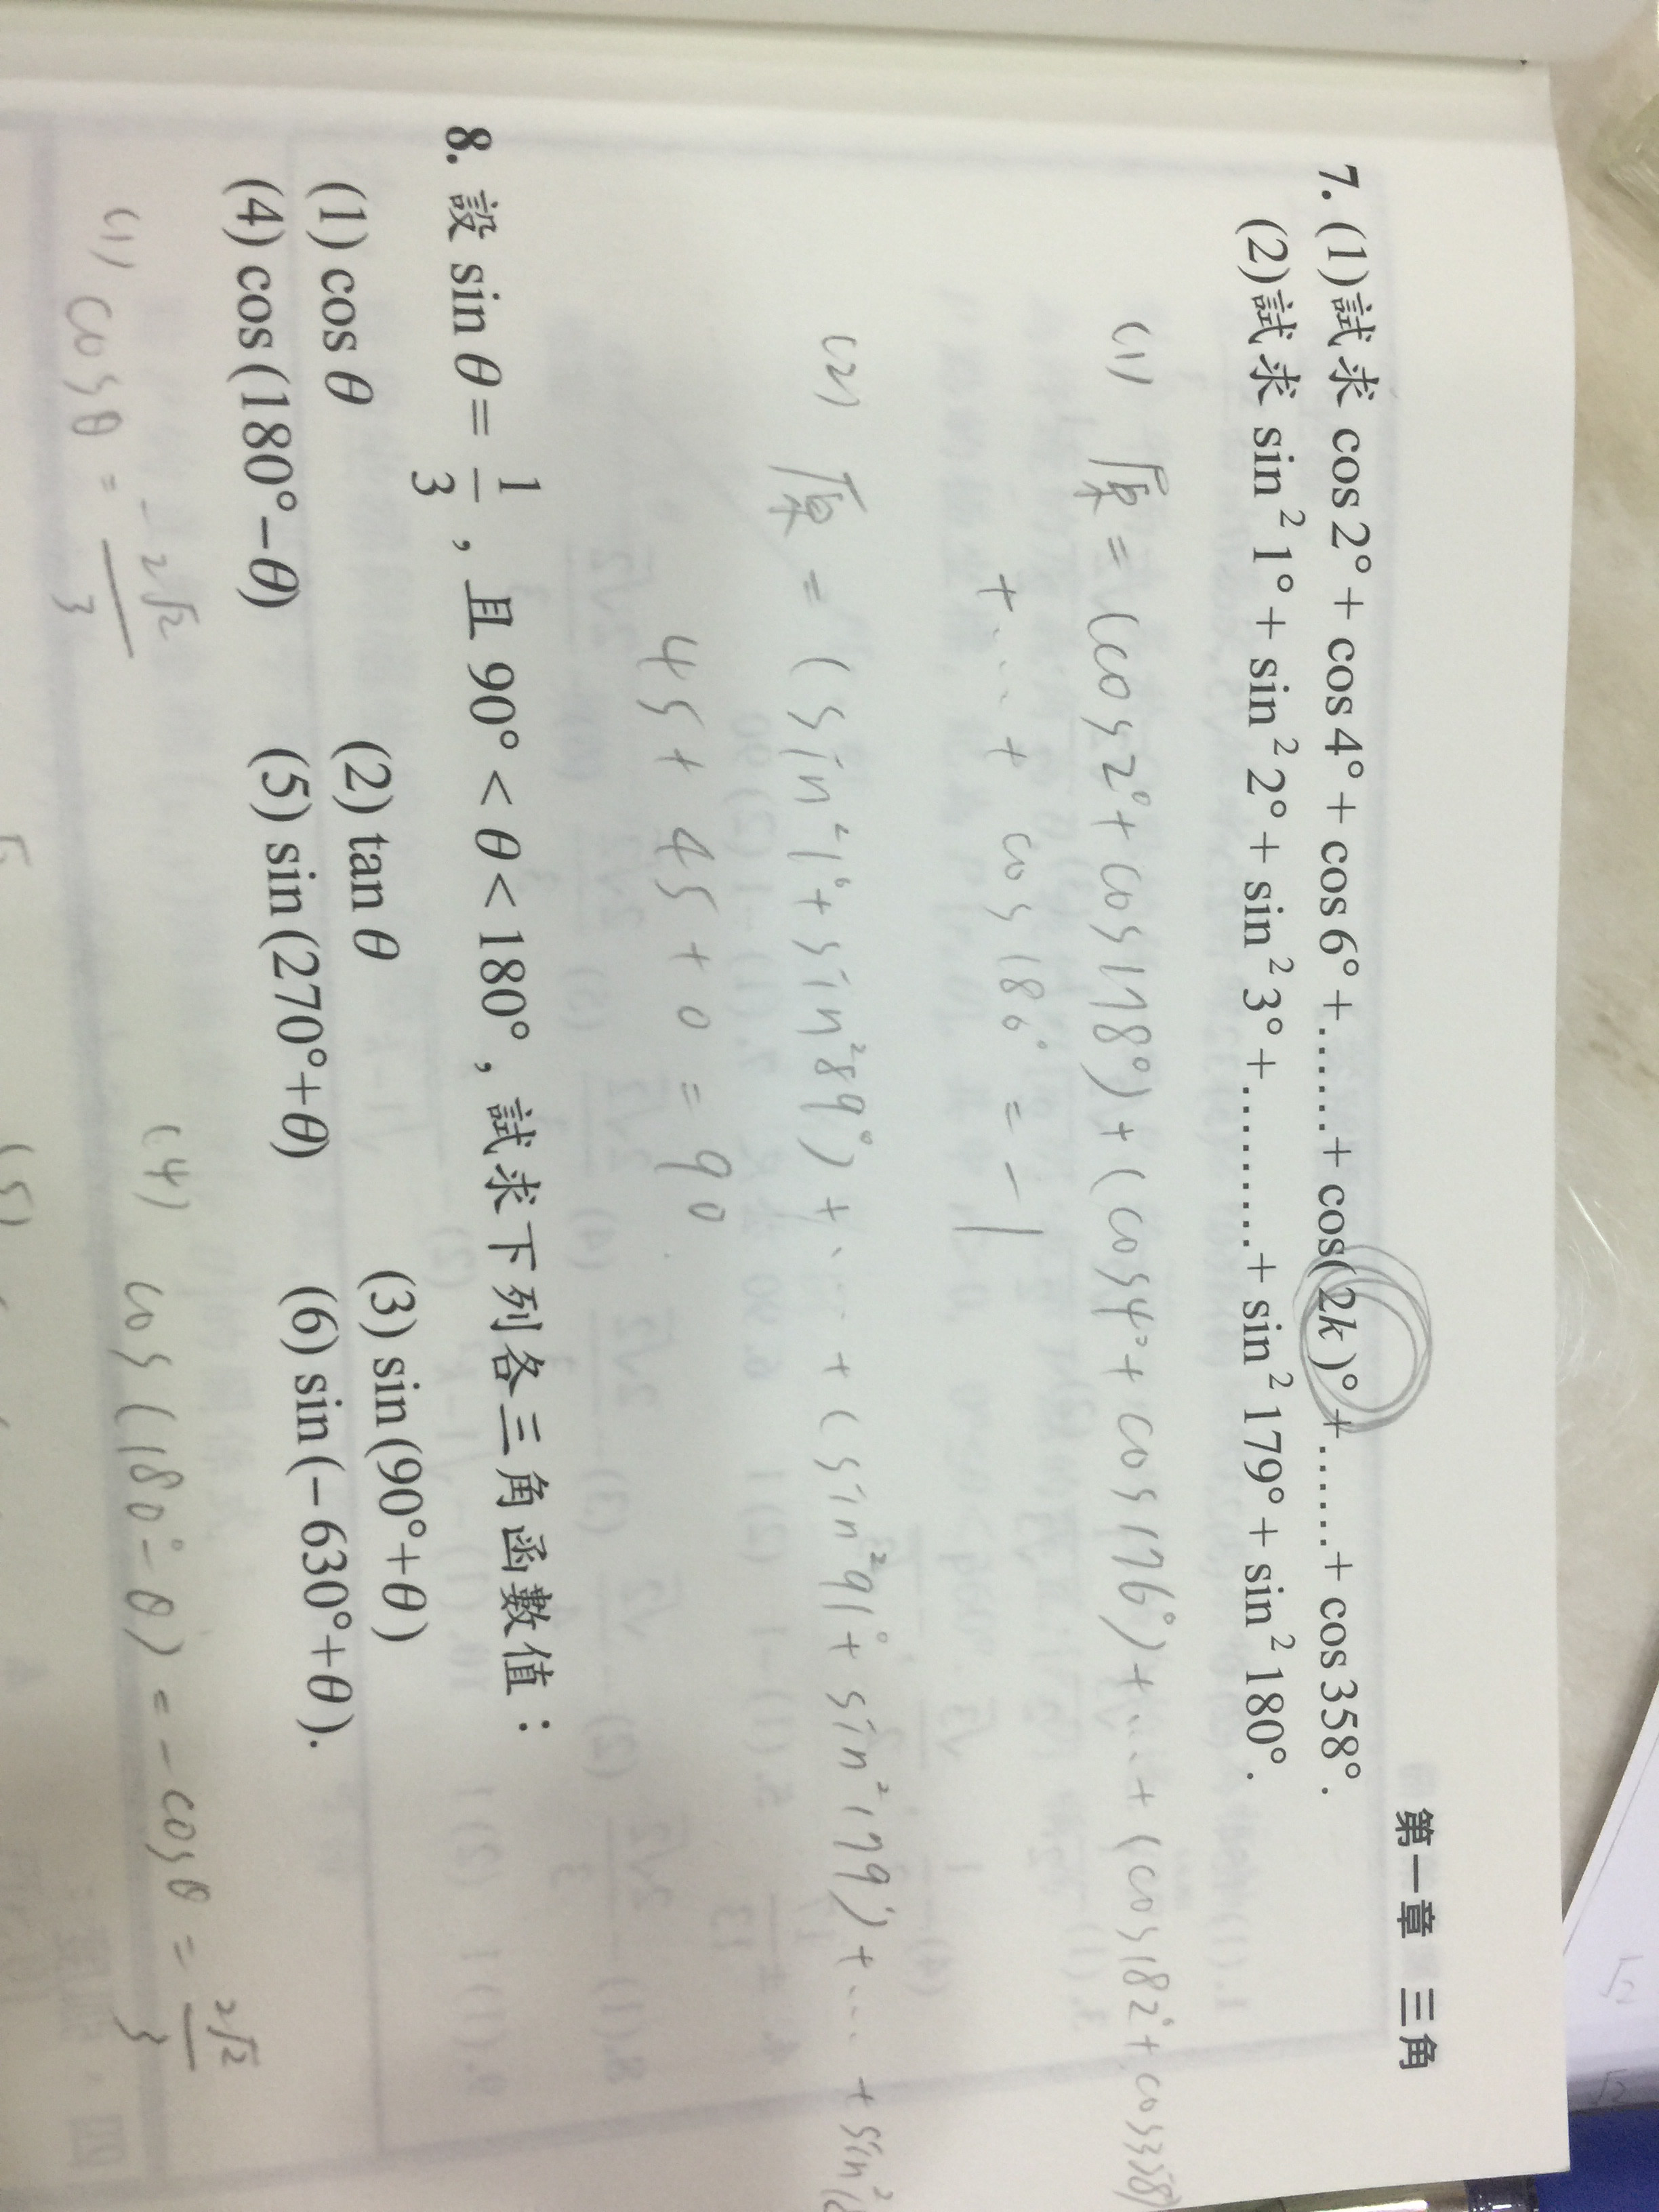 第一章 三角
7. (1)試求 cos2°+cos4°+cos6°+……+cos(2k)°+……+cos358°.
(2)試求 sin²1°+sin²2°+sin²3°+………+sin²179°+sin²180°.
(1) 原=(cos2°+cos178°)+(cos4°+cos176°)+...+(cos182°+cos358°)
+...+cos180°=-1
(2) 原=(sin²1°+sin²89°)+...+(sin²91°+sin²179°)+...+sin²
45+45+0=90
8. 設 sin θ=1/3, 且 90°<θ<180°, 試求下列各三角函數值:
(1) cos θ (2) tan θ (3) sin(90°+θ)
(4) cos(180°-θ) (5) sin(270°+θ) (6) sin(-630°+θ).
(1) cosθ=-2√2/3 (4) cos(180°-θ)=-cosθ=2√2/3
(5)